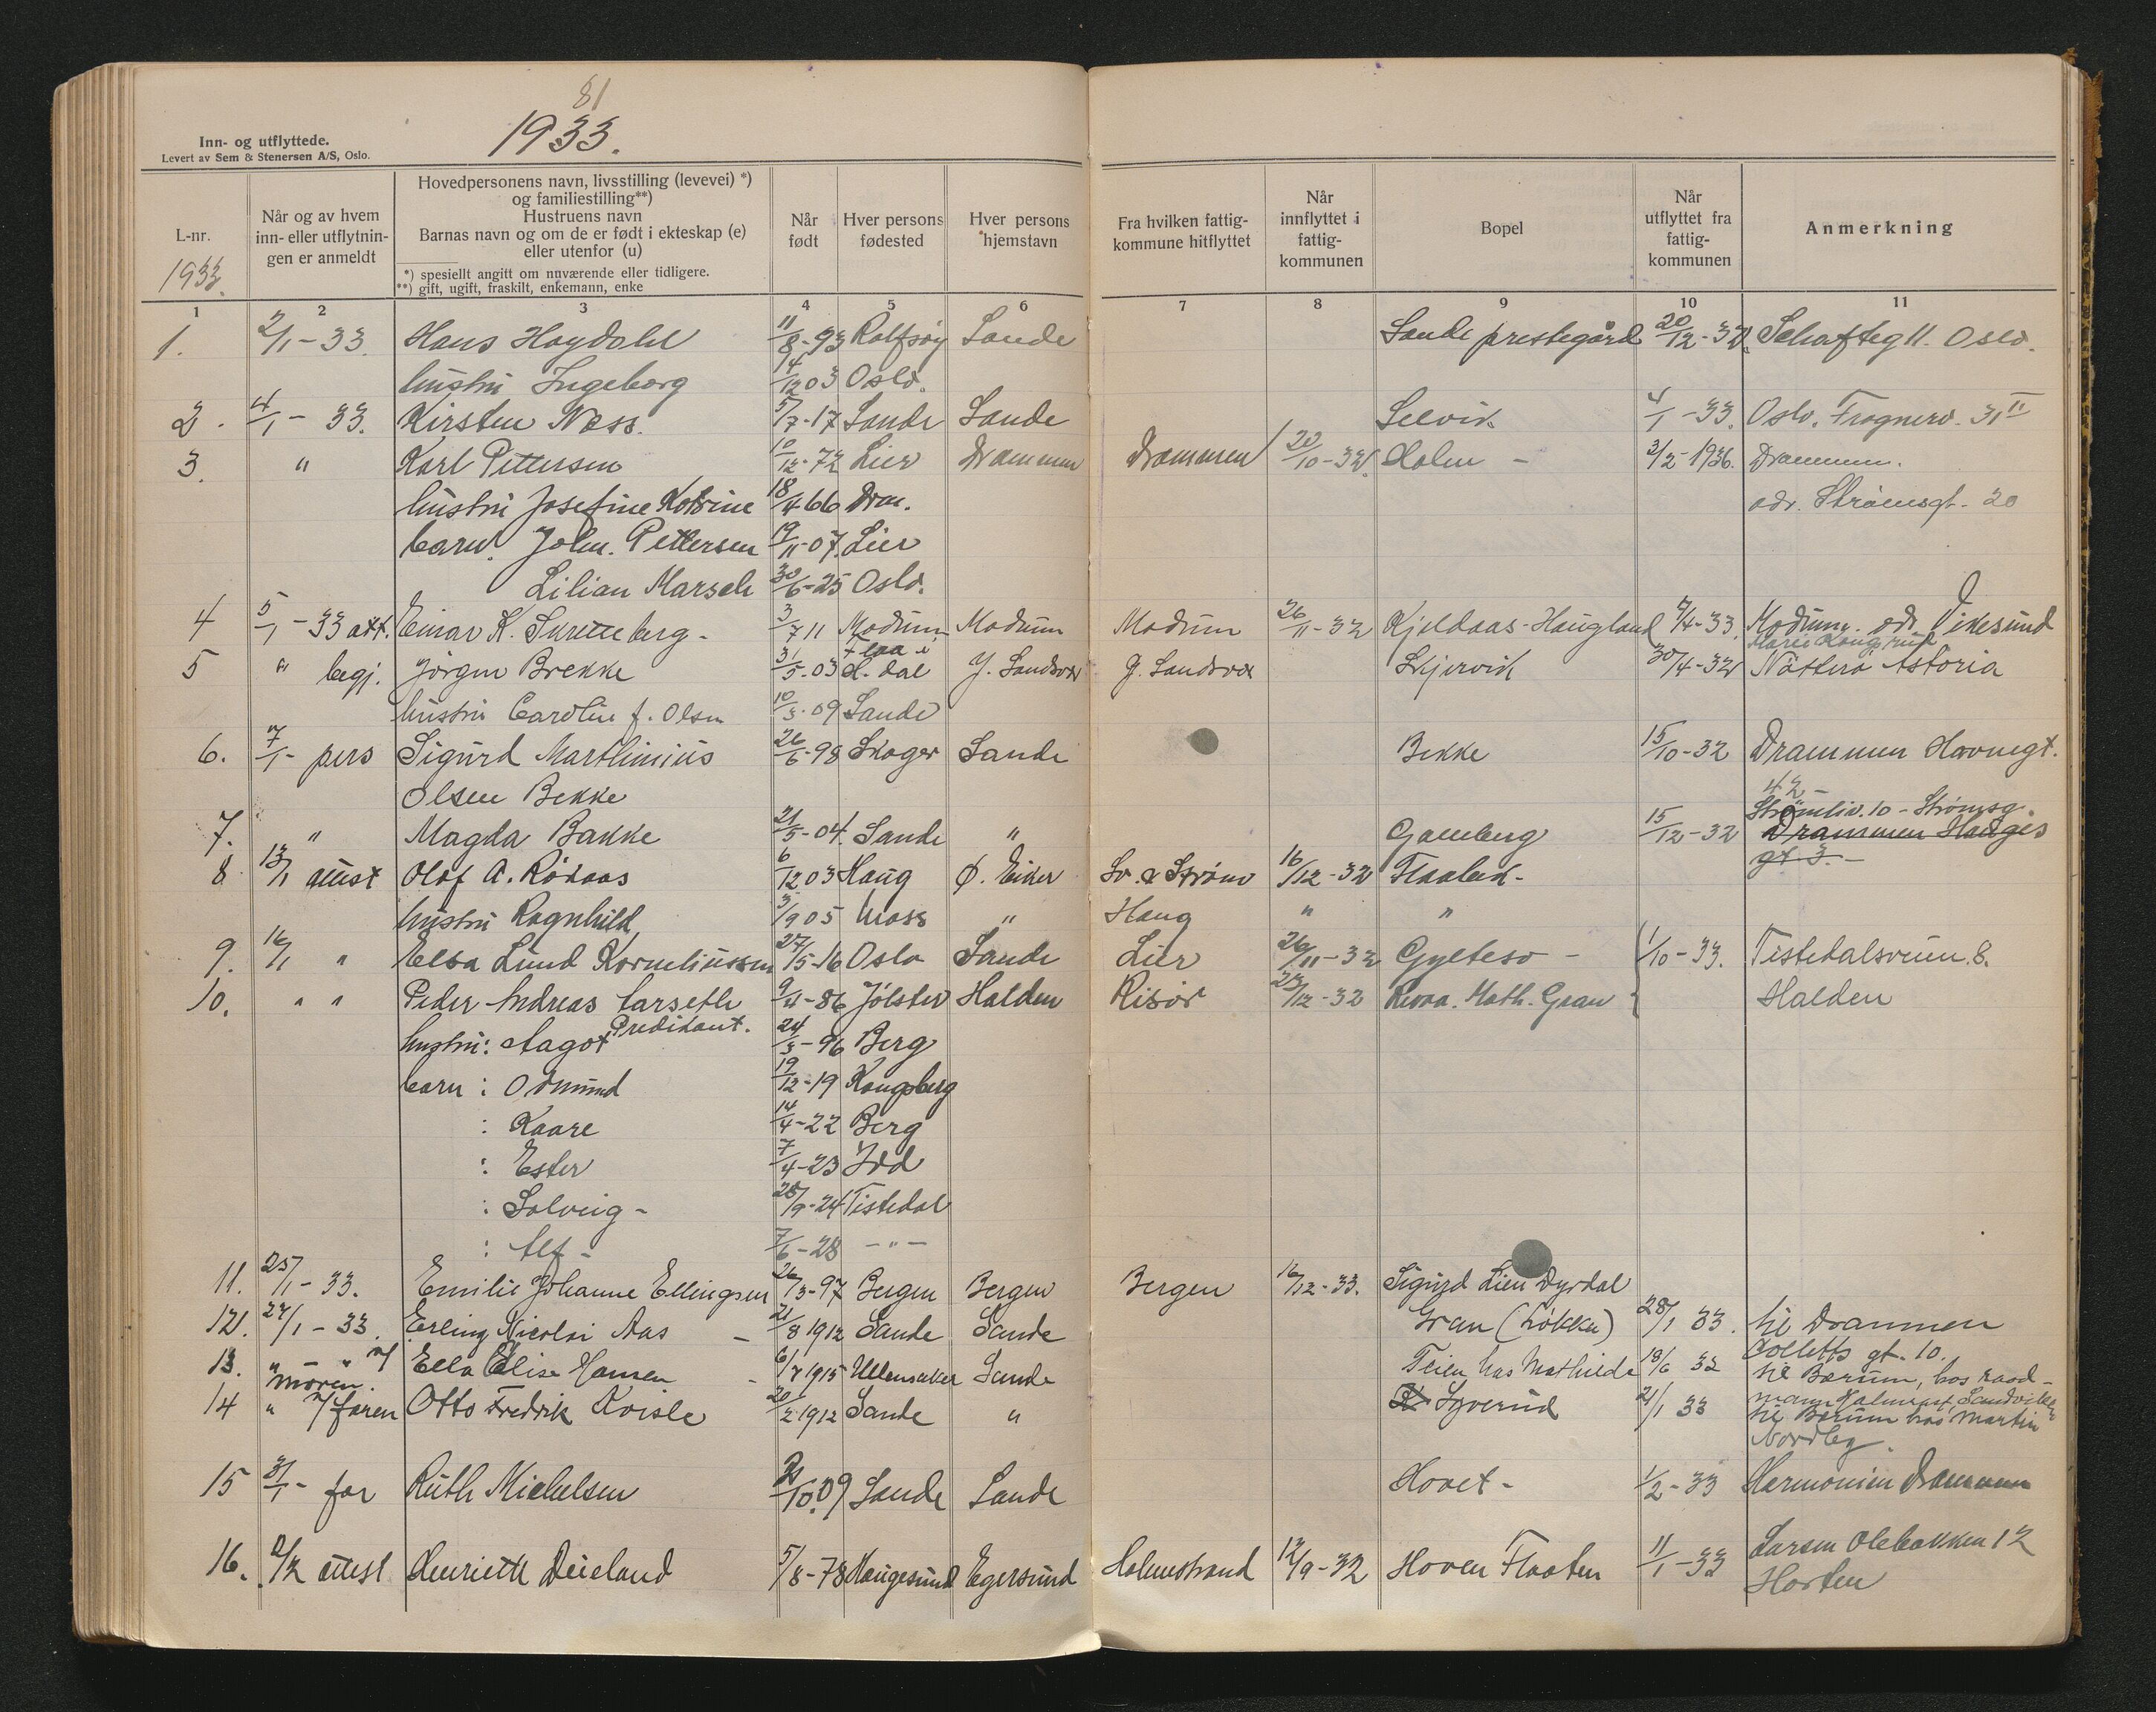 81
1933.
Inn- og utflyttede.
Levert av Sem & Stenersen A/S, Oslo.
L-nr.
1933.
Når og av hvem inn- eller utflytnin-gen er anmeldt
Hovedpersonens navn, livsstilling (levevei) *)
og familiestilling**)
Hustruens navn
Barnas navn og om de er født i ekteskap (e)
eller utenfor (u)
*) spesielt angitt om nuværende eller tidligere.
**) gift, ugift, fraskilt, enkemann, enke
Når født
Hver persons fødested
Hver persons hjemstavn
Fra hvilken fattig-kommune hitflyttet
Når innflyttet i fattig-kommunen
Bopel
Når utflyttet fra fattig-kommunen
Anmerkning
1 2 3 4 5 6 7 8 9 10 11
1. 2/1-33. Hans Høydahl 11/8-93 Rolfsøy Sande Sande prestegård 20/12-32. Schafteg 11. Oslo.
hustru Ingeborg 14/12 03 Oslo.
2. 4/1-33. Kirsten Næss. 5/7-17 Sande Sande Selvik 4/1-33. Oslo. Frognerv. 31 II
3. " Karl Pettersen 10/12-72 Lier Drammen Drammen 20/10-32. Holm - 3/2-1936. Drammen.
hustru Josefine Katrine 18/4 66 Dram. adr. Strømsgt. 20
barn. John. Pettersen 19/11-07. Lier
Lilian Marsch 30/6-25 Oslo.
4 5/1-33 att. Einar K. Skretteberg - 3/7 11 Modum Modum Modum 26/11-32 Kjeldaas-Haugland 7/4-33. Modum. adr. Vikesund
5 " begj. Jørgen Brekke 31/5-03 Flaa i H.dal Y. Sandsvær Y. Sandsvær Skjervik 30/4-32 Nøtterø Astoria
hustru Caroline f. Olsen 10/3-09 Sande
6. 7/1- pers Sigurd Marthinius 26/6-98 Skoger Sande Bekke 15/10-32 Drammen Havnegt.
Olsen Bekke 42 -
7. " Magda Bakke 21/5-04. Sande " Galleberg 15/12-32 Strømliv. 10 - Strømsg.
Drammen Hauges gt 3. -
8 13/1 attest Olaf A. Rødaas 6/12 03 Haug Ø. Eiker Sv. & Strøm 16/12-32 Flaaten -
hustru Ragnhild 3/9 05 Moss " Haug " "
9. 16/1 " Elsa Lund Korneliussen 27/5-16 Oslo Sande Lier 26/11-32 Gylteso - 1/10-33. Tistedalsveien. 8.
10. " " Peder Andreas Carseth 9/4-86 Jølster Halden Risør 23/12-32 Revaa. Math. Gran Halden
Predikant.
hustru: Aagot 24/3-96 Berg
barn: Odmund 19/12-19 Kongsberg
: Kaare 14/4-22 Berg
: Ester 7/4-23 Idd
: Solveig - 28/9-24 Tistedal
: Alf - 7/6-28 - " -
11. 25/1-33. Emilie Johanne Ellingsen 26/3-97 Bergen Bergen Bergen 16/12-33. Sigurd Lien Dyrdal
12. 27/1-33. Erling Nicolai Aas - 21/8 1912 Sande Sande Gran (Løkka) 28/1 33. til Drammen
Colletts gt. 10.
13. " - " v/ moren. Ella Elise Hansen - 6/7 1915 Ullensaker Sande Teien hos Mathilde 18/6 32 til Bærum, hos raad-
14 " v/ faren Otto Fredrik Kvisle 20/2 1912 Sande " Syverud 21/1 33 til Bærum hos Martin
Nordby.
15 31/1- far Ruth Michelsen 21/10.09 Sande Sande Hovet - 1/2-33 Harmonien Drammen
16. 2/2 attest Henriette Dueland 5/8-78 Haugesund Egersund Holmestrand 12/9-32 Hoven Flaaten 11/1-33 Larsen Olebakken 12
Horten